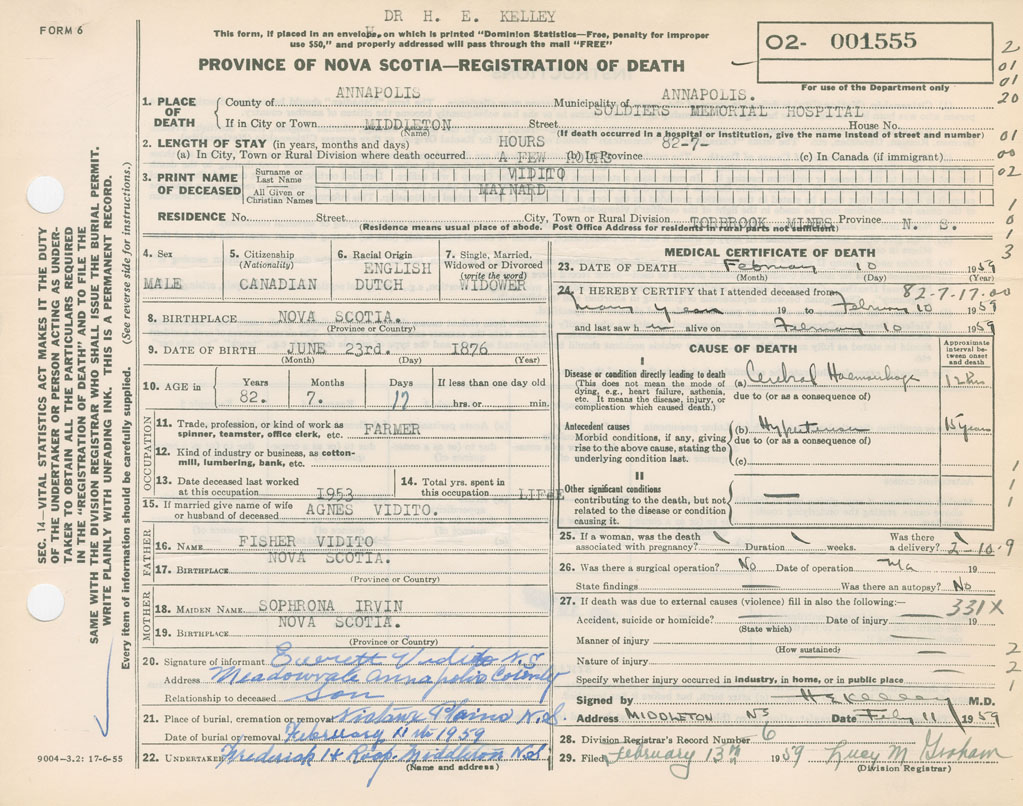 DR H. E. KELLEY
FORM 6
This form, if placed in an envelope, on which is printed "Dominion Statistics—Free, penalty for improper
use $50," and properly addressed will pass through the mail "FREE"
02- 001555
PROVINCE OF NOVA SCOTIA—REGISTRATION OF DEATH
For use of the Department only
2
01
01
20
1. PLACE OF DEATH
County of ANNAPOLIS Municipality of ANNAPOLIS.
SOLDIERS MEMORIAL HOSPITAL
If in City or Town MIDDLETON Street House No.
(Name) (If death occurred in a hospital or institution, give the name instead of street and number)
01
00
02
2. LENGTH OF STAY (in years, months and days) HOURS 82-7-
(a) In City, Town or Rural Division where death occurred A FEW HOURS (b) In Province (c) In Canada (if immigrant)
3. PRINT NAME OF DECEASED
Surname or Last Name VIDITO
All Given or Christian Names MAYNARD
1
0
1
3
RESIDENCE No. Street City, Town or Rural Division TORBROOK MINES Province N. S.
(Residence means usual place of abode. Post Office Address for residents in rural parts not sufficient)
4. Sex
MALE
5. Citizenship
(Nationality)
CANADIAN
6. Racial Origin
ENGLISH
DUTCH
7. Single, Married,
Widowed or Divorced
(write the word)
WIDOWER
8. BIRTHPLACE NOVA SCOTIA.
(Province or Country)
9. DATE OF BIRTH JUNE 23rd. 1876
(Month) (Day) (Year)
10. AGE in
Years Months Days If less than one day old
82. 7. 17 hrs. or min.
OCCUPATION
11. Trade, profession, or kind of work as
spinner, teamster, office clerk, etc. FARMER
12. Kind of industry or business, as cotton-
mill, lumbering, bank, etc.
13. Date deceased last worked
at this occupation 1953
14. Total yrs. spent in
this occupation LIFE
15. If married give name of wife
or husband of deceased AGNES VIDITO.
FATHER
16. NAME FISHER VIDITO
17. BIRTHPLACE NOVA SCOTIA.
(Province or Country)
MOTHER
18. MAIDEN NAME SOPHRONA IRVIN
19. BIRTHPLACE NOVA SCOTIA.
(Province or Country)
20. Signature of informant Everett Vidito N.S
Address Meadowvale Annapolis County
Relationship to deceased Son
21. Place of burial, cremation or removal Nictaux Plains N.S.
Date of burial or removal February 11th 1959
22. UNDERTAKER Frederick H Roop. Middleton N.S
(Name and address)
MEDICAL CERTIFICATE OF DEATH
23. DATE OF DEATH February 10 1959
(Month) (Day) (Year)
24. I HEREBY CERTIFY that I attended deceased from 82-7-17-00
many years 19 to February 10 1959
and last saw him alive on February 10 1959
CAUSE OF DEATH
Approximate
interval be-
tween onset
and death
I
Disease or condition directly leading to death
(This does not mean the mode of
dying, e.g., heart failure, asthenia,
etc. It means the disease, injury, or
complication which caused death.)
(a) Cerebral Haemorrhage 12 hrs
due to (or as a consequence of)
Antecedent causes
Morbid conditions, if any, giving
rise to the above cause, stating the
underlying condition last.
(b) Hypertension 15 years
due to (or as a consequence of)
(c)
II
Other significant conditions
contributing to the death, but not
related to the disease or condition
causing it.
1
1
1
25. If a woman, was the death
associated with pregnancy? Duration weeks.
Was there
a delivery? 2-10-9
26. Was there a surgical operation? No Date of operation 19
State findings Was there an autopsy? No
27. If death was due to external causes (violence) fill in also the following:—
331X
Accident, suicide or homicide? Date of injury 19
(State which)
Manner of injury
(How sustained)
Nature of injury
Specify whether injury occurred in industry, in home, or in public place
2
2
1
Signed by H E Kelley M.D.
Address MIDDLETON NS Date Feby 11 1959
28. Division Registrar's Record Number 6
29. Filed February 13th 1959 Lucy M. Graham
(Division Registrar)
SEC. 14—VITAL STATISTICS ACT MAKES IT THE DUTY
OF THE UNDERTAKER OR PERSON ACTING AS UNDER-
TAKER TO OBTAIN ALL THE PARTICULARS REQUIRED
IN THE "REGISTRATION OF DEATH" AND TO FILE THE
SAME WITH THE DIVISION REGISTRAR WHO SHALL ISSUE THE BURIAL PERMIT.
WRITE PLAINLY WITH UNFADING INK. THIS IS A PERMANENT RECORD.
Every item of information should be carefully supplied. (See reverse side for instructions.)
9004—3.2: 17-6-55